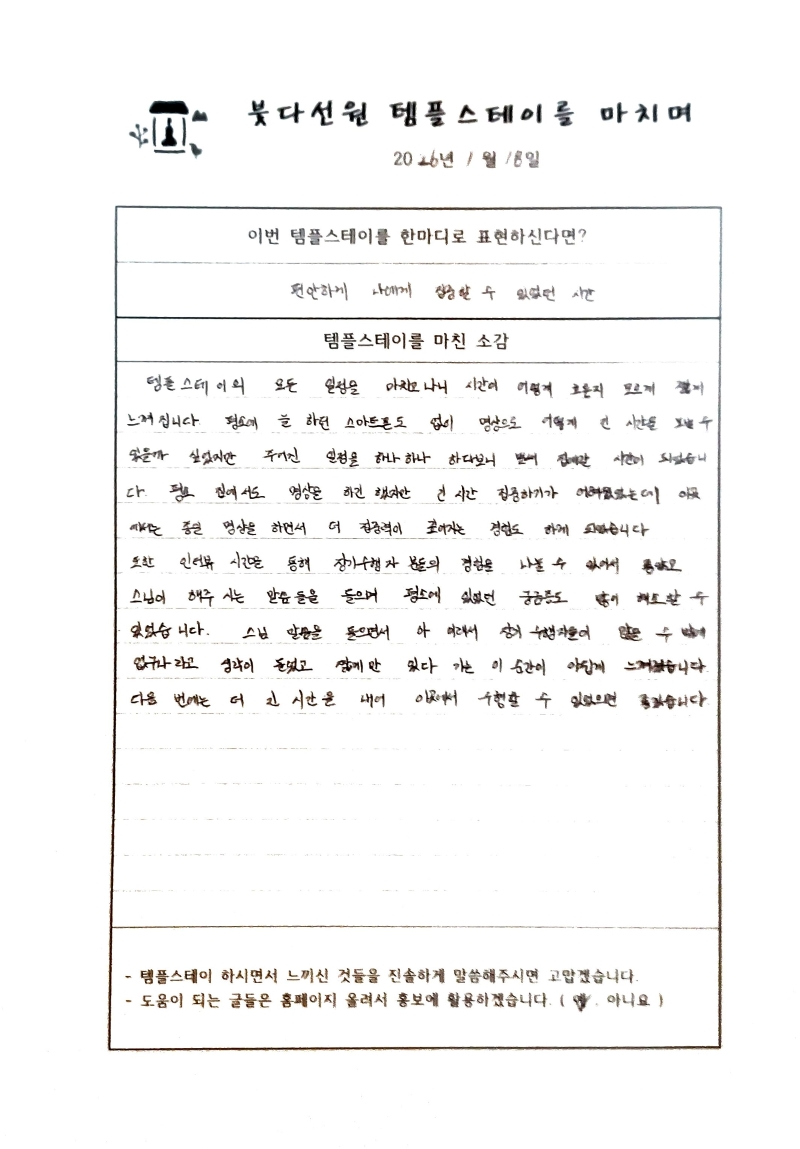 붓다선원 템플스테이를 마치며
2026년 1월 18일
이번 템플스테이를 한마디로 표현하신다면?
편안하게 나에게 집중할 수 있었던 시간
템플스테이를 마친 소감
템플스테이의 모든 일정을 마치고나니 시간이 어떻게 흐른지 모르게 짧게
느껴집니다. 평소에 늘 하던 스마트폰도 없이 명상으로 어떻게 긴 시간을 보낼 수
있을까 싶었지만 주어진 일정을 하나하나 하다보니 벌써 집에갈 시간이 되었습니
다. 평소 집에서도 명상을 하긴 했지만 긴 시간 집중하기가 어려웠었는데 이곳
에서는 종일 명상을 하면서 더 집중력이 좋아지는 경험도 하게 되었습니다
또한 인터뷰 시간을 통해 장기수행자 분들의 경험을 나눌 수 있어서 좋았고
스님이 해주시는 말씀들을 들으며 평소에 있었던 궁금증도 많이 해소할 수
있었습니다. 스님 말씀을 들으면서 아 이래서 장기 수행자들이 많을 수 밖에
없구나 라고 생각이 들었고 짧게만 있다 가는 이 순간이 아쉽게 느껴졌습니다.
다음 번에는 더 긴 시간을 내어 이곳에서 수행할 수 있었으면 좋겠습니다
- 템플스테이 하시면서 느끼신 것들을 진솔하게 말씀해주시면 고맙겠습니다.
- 도움이 되는 글들은 홈페이지 올려서 홍보에 활용하겠습니다. ( 예 . 아니요 )